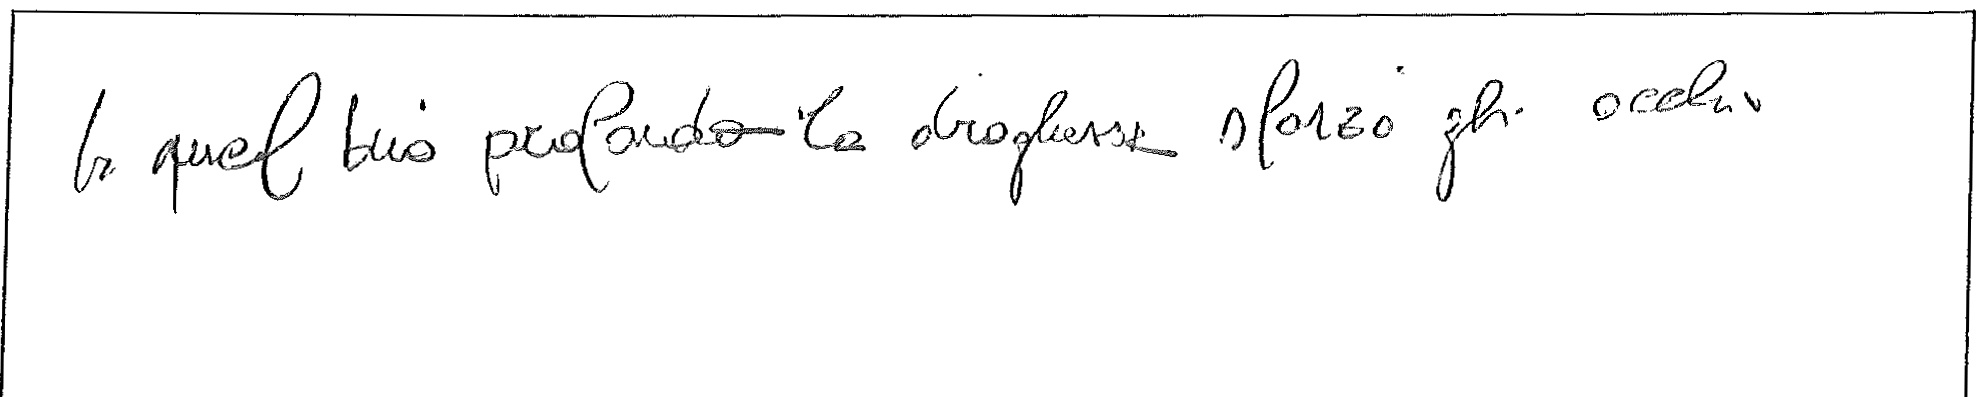 In quel buio profondo la draghessa sforzò gli occhi